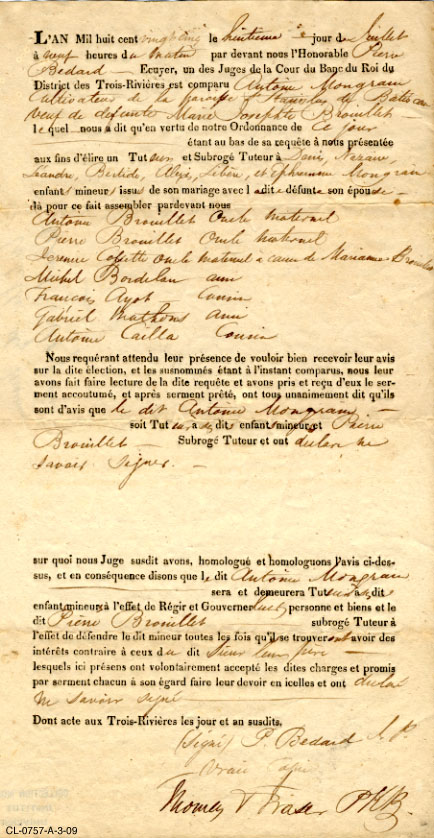 L'AN Mil huit cent vingt le huitieme jour de Juillet
à neuf heures du matin par devant nous l'Honorable Pierre
Bedard — Ecuyer, un des Juges de la Cour du Banc du Roi du
District des Trois-Rivières est comparu Antoine Mongrain
Cultivateur de la paroisse St Stanislas de Batiscan
veuf de defunte Marie Josephte Brouillet —
lequel nous a dit qu'en vertu de notre Ordonnance de Ce jour
étant au bas de sa requête à nous présentée
aux fins d'élire un Tuteur et Subrogé Tuteur à Denis, Nezaire
Leandre, Alexi, et Ephremme Mongrain
enfants mineurs issus de son mariage avec ladite défunte son épouse
dà pour ce fait assembler pardevant nous
Antoine Brouillet Oncle Maternel
Pierre Brouillet Oncle Maternel
Jeremie Oncle Maternel a cause de Marianne Brouillet
Michel Bordelau ami
Francois Ayot Cousin
Gabriel ami
Antoine Cailla Cousin
Nous requérant attendu leur présence de vouloir bien recevoir leur avis
sur la dite élection, et les susnommés étant à l'instant comparus, nous leur
avons fait faire lecture de la dite requête et avons pris et reçu d'eux le ser-
ment accoutumé, et après serment prêté, ont tous unanimement dit qu'ils
sont d'avis que le dit Antoine Mongrain
soit Tuteur a dits enfants mineurs et Pierre
Brouillet — Subrogé Tuteur et ont declaré ne
savoir signer. —
sur quoi nous Juge susdit avons, homologué et homologuons l'avis ci-des-
sus, et en conséquence disons que le dit Antoine Mongrain
sera et demeurera Tuteur dits
enfants mineurs à l'effet de Régir et Gouverner leurs personne et biens et le
dit Pierre Brouillet subrogé Tuteur à
l'effet de défendre le dit mineur toutes les fois qu'il se trouveront avoir des
intérêts contraire à ceux du dit Sieur leur père —
lesquels ici présens ont volontairement accepté les dites charges et promis
par serment chacun à son égard faire leur devoir en icelles et ont declaré
ne savoir signé —
Dont acte aux Trois-Rivières les jour et an susdits.
(Signé) P. Bedard
Vraie Copie
Thomas Fraser PKB
CL-0757-A-3-09